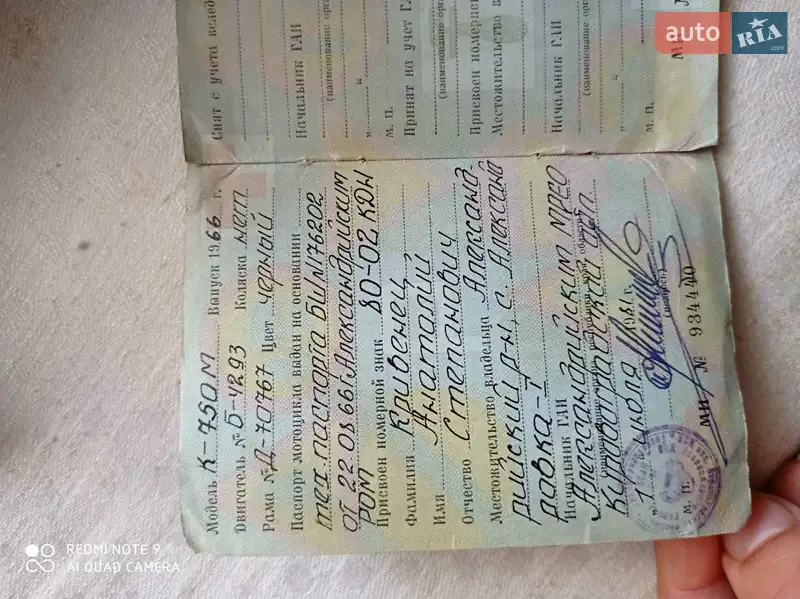 Снят с учета вслед
Начальник ГАИ
(наименование орг
"
М. П.
Принят на учет ГА
(наименование орг
Присвоен номерной
Местожительство в
Начальник ГАИ
(наименование
"
М. П.
Модель К-750М Выпуск 1966 г.
Двигатель № Б-4293 Коляска нет
Рама № Д-70767 Цвет черный
Паспорт мотоцикла выдан на основании
тех.паспорта БШ №176202
от 22.08.66г. Александрийским
РОМ
Присвоен номерной знак 80-02 КДН
Фамилия Кривенец
Имя Анатолий
Отчество Степанович
Местожительство владельца Александ-
рийский р-н, с. Александ
ровка-I
Начальник ГАИ
Александрийским МРЭО
Кировоградской обл.
1 июля 1981 г.
М. П.
МИ № 934440
auto RIA .com
REDMI NOTE 9
AI QUAD CAMERA